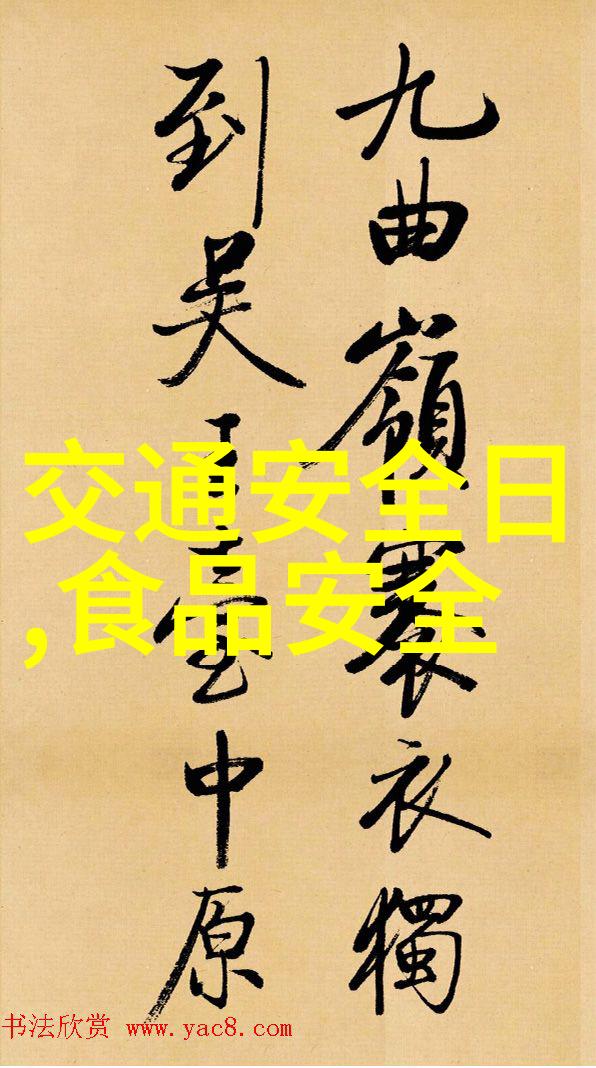 九曲嶺褰衣獨
到吳王臺中原
交通安全日
,食品安全
书法欣赏 www.yac8.com